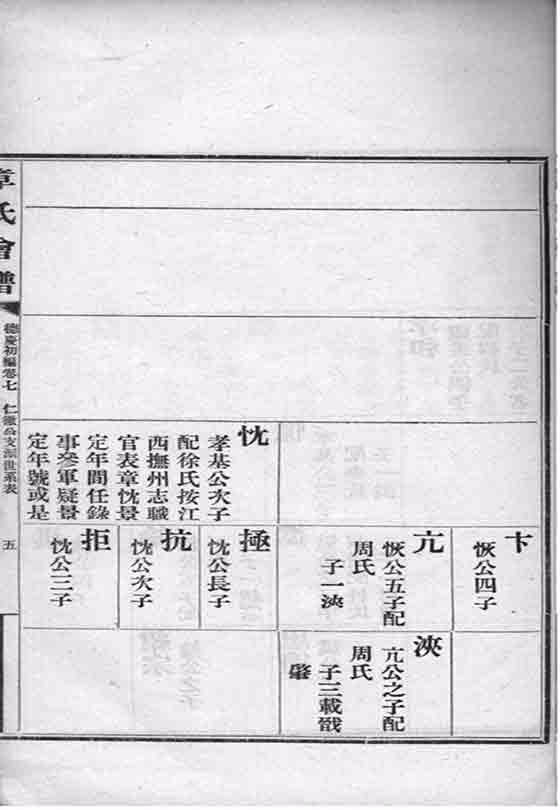 忱
孝基公次子
配徐氏按江
西撫州志職
官表章忱景
定年間任錄
事叅軍疑景
定年號或是
卞
恢公四子
亢
恢公五子配
周氏
子一浹
極
忱公長子
抗
忱公次子
拒
忱公三子
浹
亢公之子配
周氏
子三載戩
肇
章氏會譜
德慶初編卷七
仁徽公支派世系表
五